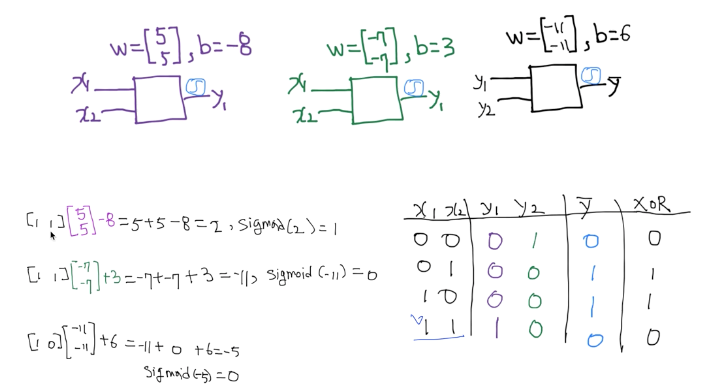 w=[5 5], b=-8
x1
x2
S
y1
w=[-7 -7], b=3
x1
x2
S
y1
w=[-11 -11], b=6
y1
y2
S
ȳ
[1 1][5 5]-8=5+5-8=2, sigmoid(2)=1
[1 1][-7 -7]+3=-7+-7+3=-11, sigmoid(-11)=0
[1 0][-11 -11]+6=-11+0+6=-5
sigmoid(-5)=0
x1 x2 y1 y2 ȳ XOR
0 0 0 1 0 0
0 1 0 0 1 1
1 0 0 0 1 1
√1 1 1 0 0 0